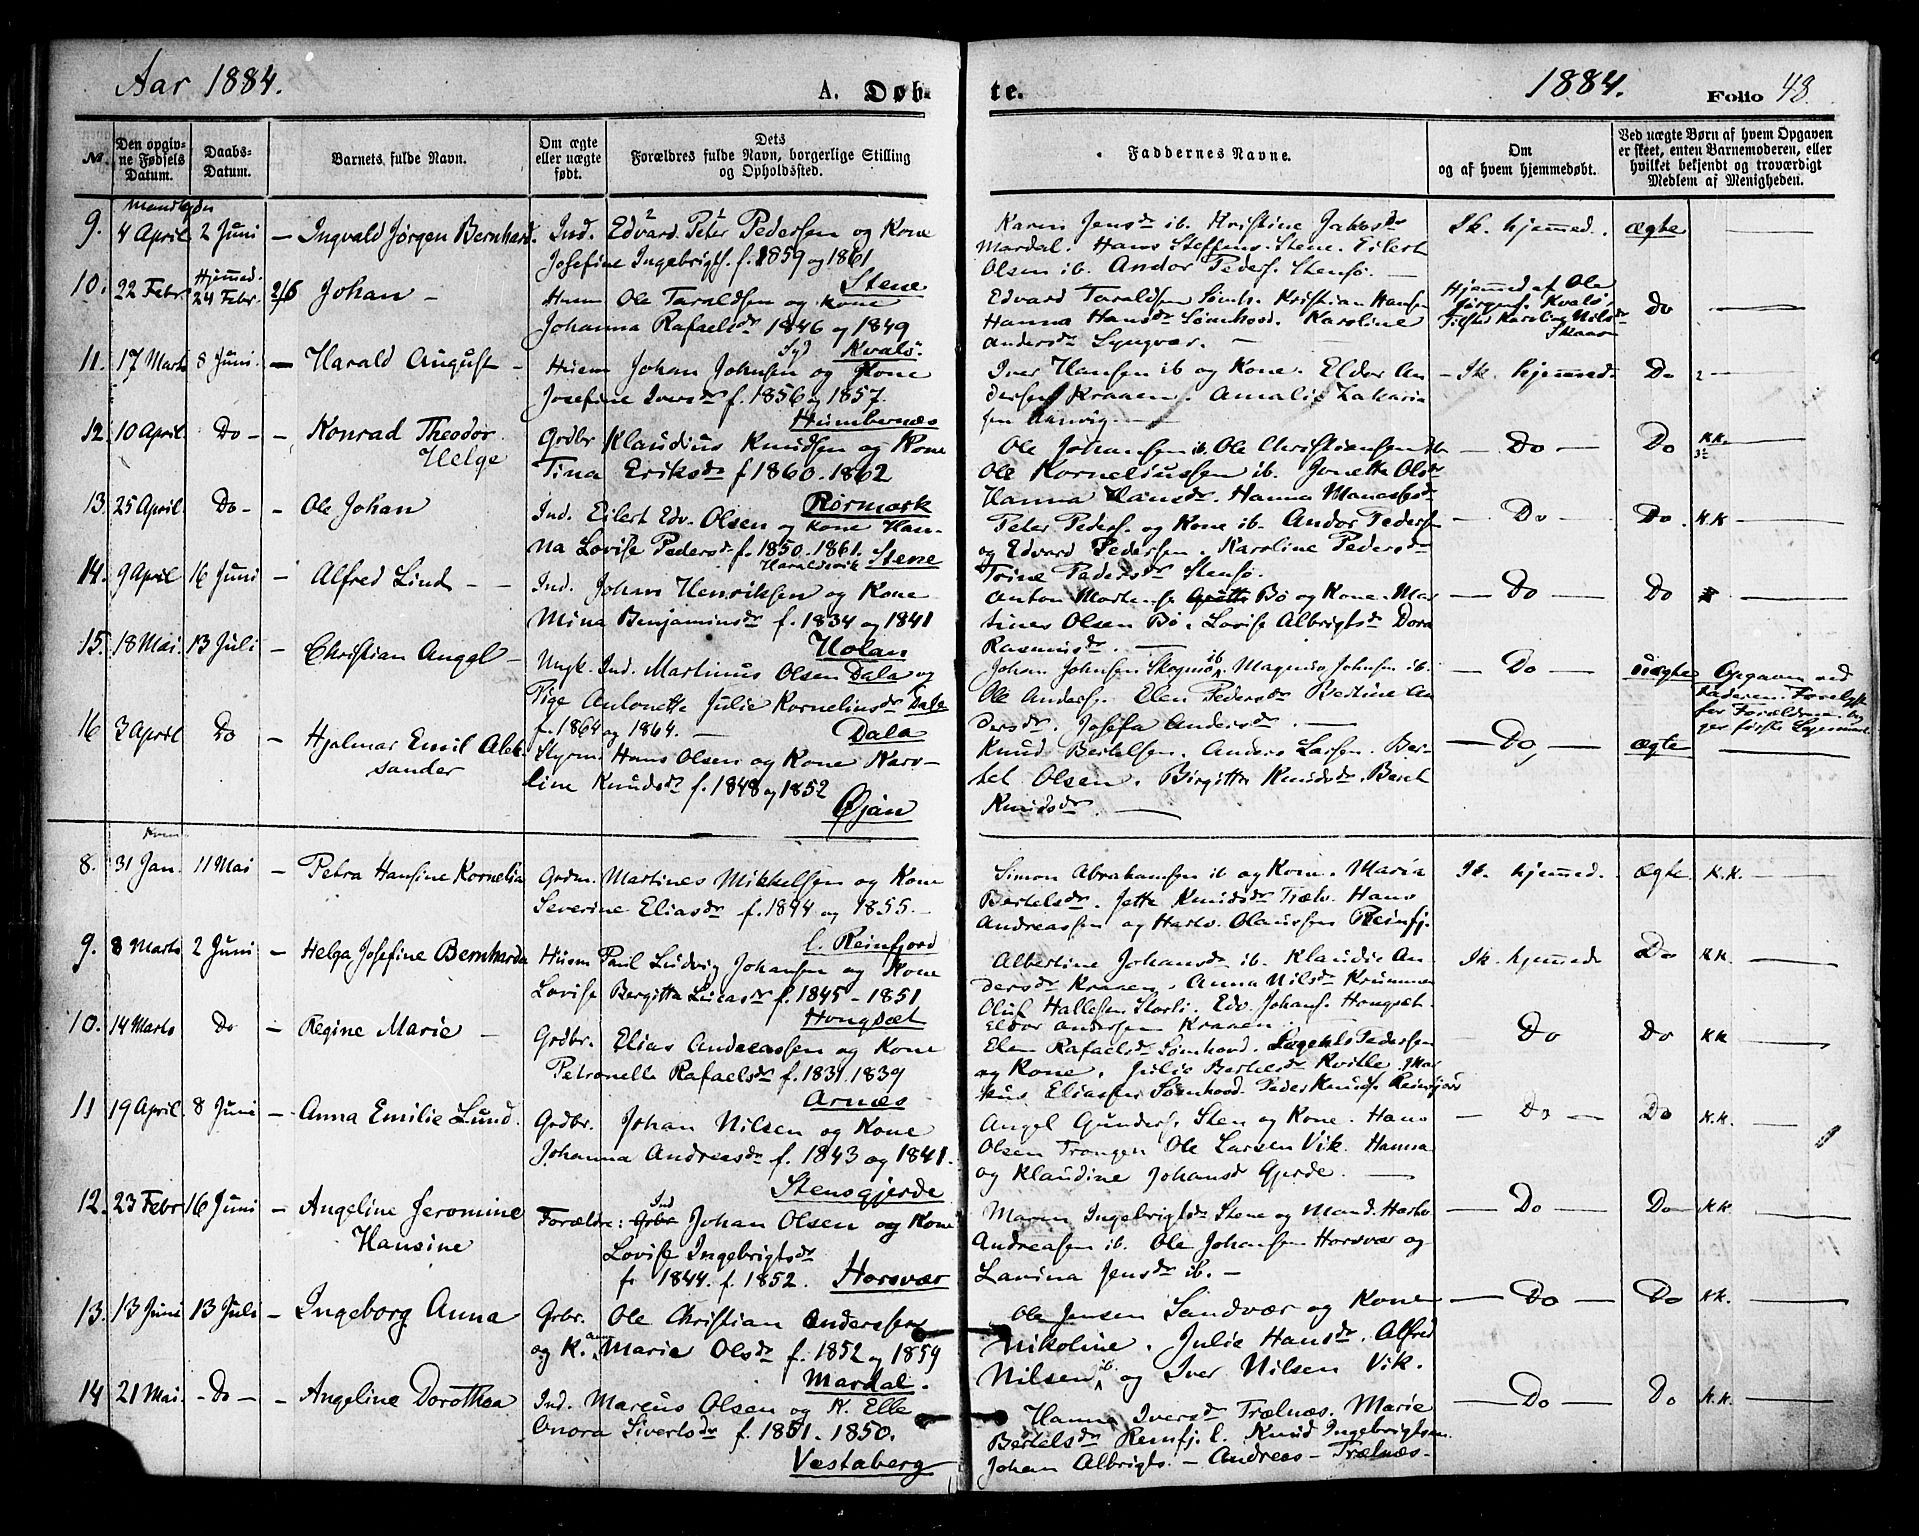 Aar 1884.
A. Døb-
te.
1884.
Folio 48.
No.
Den opgiv-
ne Fødsels
Datum.
Daabs-
Datum.
Barnets fulde Navn.
Om ægte
eller uægte
født.
Dets
Forældres fulde Navn, borgerlige Stilling
og Opholdssted.
Faddernes Navne.
Om
og af hvem hjemmedøbt.
Ved uægte Børn af hvem Opgaven
er skeet, enten Barnemoderen, eller
hvilket bekjendt og troværdigt
Medlem af Menigheden.
Mandkjøn
9. 4 April 2 Juni – Ingvald Jørgen Bernhard. Ind. Edvard Peter Pedersen og Kone
Josefine Ingebrigts. f. 1859 og 1861
Stene
Karen Jensdr ib. Kristine Jakobsdr
Mardal. Hans Steffens. Stene. Eilert
Olsen ib. Andor Peders. Stensø.
Ik. hjemmed. ægte
10. 22 Febr. Hjemmed. 24 Febr. 2/6 Johan – Husm Ole Taraldsen og Kone
Johanna Rafaelsdr 1846 og 1849
Kvalø.
Edvard Taraldsen Sømh. Kristian Hansen
Hanna Hansdr Sømhovd. Karoline
Andersdr Lyngvær.
Hjemmed af Ole
Jørgens. Kvalø.
Tilsted Karoline Nilsdr
Skaar
Do
11. 17 Marts 8 Juni – Harald August – Husm Johan Johnsen og Kone
Josefine Iversdr f. 1856 og 1857.
Humbernæs
Iver Hansen ib og Kone. Eldor An
dersen Kraaen. Amalie Zakaria
sen
– Ik. hjemmed. Do
12. 10 April Do – – Konrad Theodor
Helge
Grdbr Klaudius Knudsen og Kone
Tina Eriksdr f 1860. 1862
Rørmark
Ole Johansen ib. Ole Christiansen ib
Ole Korneliussen ib. Jonette Olsdr
Hanna Hansdr. Hanna Manassesdr
– Do – Do K.K.
13. 25 April Do – – Ole Johan
Ind. Eilert Edv. Olsen og Kone Han-
na Lovise Pedersdr f. 1850. 1861. Stene
Peter Peders. og Kone ib. Andor Peders
og Edvard Pedersen. Karoline Pedersdr
Trine Pedersdr Stensø.
– Do – Do. K.K
14. 9 April 16 Juni – Alfred Lind – – Ind. Johan Henriksen og Kone
Mina Benjaminsdr f. 1834 og 1841
Holan
Anton Mortens. Bø og Kone. Mar
tines Olsen Bø. Lovise Albrigtsdr Dora
Rasmusdr.
– Do – Do
15. 18 Mai 13 Juli – Christian Angel – Ungk. Ind. Martinus Olsen Dala og
Pige Antonette Julie Korneliusdr Dala
f. 1864 og 1864. – Dala
Johan Johnsen Skogmo ib. Magnus Johnsen ib.
Ole Anders. Elen Pedersdr Bertine An
dersdr. Josefa Andersdr.
– Do – uægte Opgaven ved
Faderen.
16 3 April Do – Hjalmar Emil Alek
sander
Styrm. Hans Olsen og Kone Karo-
line Knudsdr f. 1848 og 1852
Øjan
Knud Bertelsen. Anders Larsen. Ber-
tel Olsen. Birgitte Knudsdr. Berit
Knudsdr.
– Do, – ægte
Kvin
8. 31 Jan. 11 Mai – Petra Hansine Kornelia Grdm. Martines Mikkelsen og Kone
Severine Eliasdr f. 1844 og 1855. –
l. Reinfjord
Simon Abrahamsen ib og Kone. Maria
Bertelsdr. Jette Knudsdr Trælv. Hans
Andreassen og Hartv. Olaussen Reinfj.
Ik. hjemmed. ægte K.K.
9. 8 Marts 2 Juni – Helga Josefine Bernharda Husm Paul Ludvig Johansen og Kone
Lovise Bergitta Lucasdr f. 1845 – 1851
Hongsæt
Albertine Johansdr ib. Klaudie An
dersdr Kraaen. Anna Nilsdr Krummen
Oluf Hallesen Storli. Edv. Johans. Hongsæt
Eldor Andersen Kraaen.
Ik. hjemmed Do K K.
10. 14 Marts Do – Regine Marie – Grdbr. Elias Andreassen og Kone
Petronelle Rafaelsdr f. 1831. 1839
Arnæs
Elen Rafaelsdr Sømhovd. Pedersen
og Kone. Julie Bertelsdr Kville. Mar
kus Eliassen Sømhovd. Peder Knuds. Reinfjord
Do Do K.K
11 19 April. 8 Juni – Anna Emilie Lund. Grdbr. Johan Nilsen og Kone
Johanna Andreasdr f. 1843 og 1841.
Stensgjerde
Angel Gunders. Sten og Kone. Hans
Olsen Trongen Ole Larsen Vik. Hanna
og Klaudine Johansdr Gjerde.
– Do – Do K.K.
12. 23 Febr 16 Juni – Angeline Jeromine
Hansine
Forældre: Ind Johan Olsen og Kone
Lovise Ingebrigtsdr
f. 1844. f. 1852. Horsvær
Maren Ingebrigtsdr Stene og Mand. Hartv.
Andreassen ib. Ole Johansen Horsvær og
Lavina Jensdr ib. –
– Do – Do K.K.
13. 13 Juni 13 Juli – Ingeborg Anna Grbr. Ole Christian Andersen
og K. Anne Marie Olsdr f. 1852 og 1859
Mardal.
Ole Jensen Sandvær og Kone
Nikoline. Julie Hansdr. Alfred
Nilsen ib. og Iver Nilsen Vik.
– Do – Do K.K.
14 21 Mai. – Do – – Angeline Dorothea Ind. Marcus Olsen og K. Elle
Onora Sivertsdr f. 1851. 1850.
Vestaberg
Hanna Iversdr Trælnæs. Marie
Bertelsdr Reinfj. l. Knud Ingebrigtsen
Johan Albrigts. – Andreas – Trælnæs –
– Do – Do K.K.